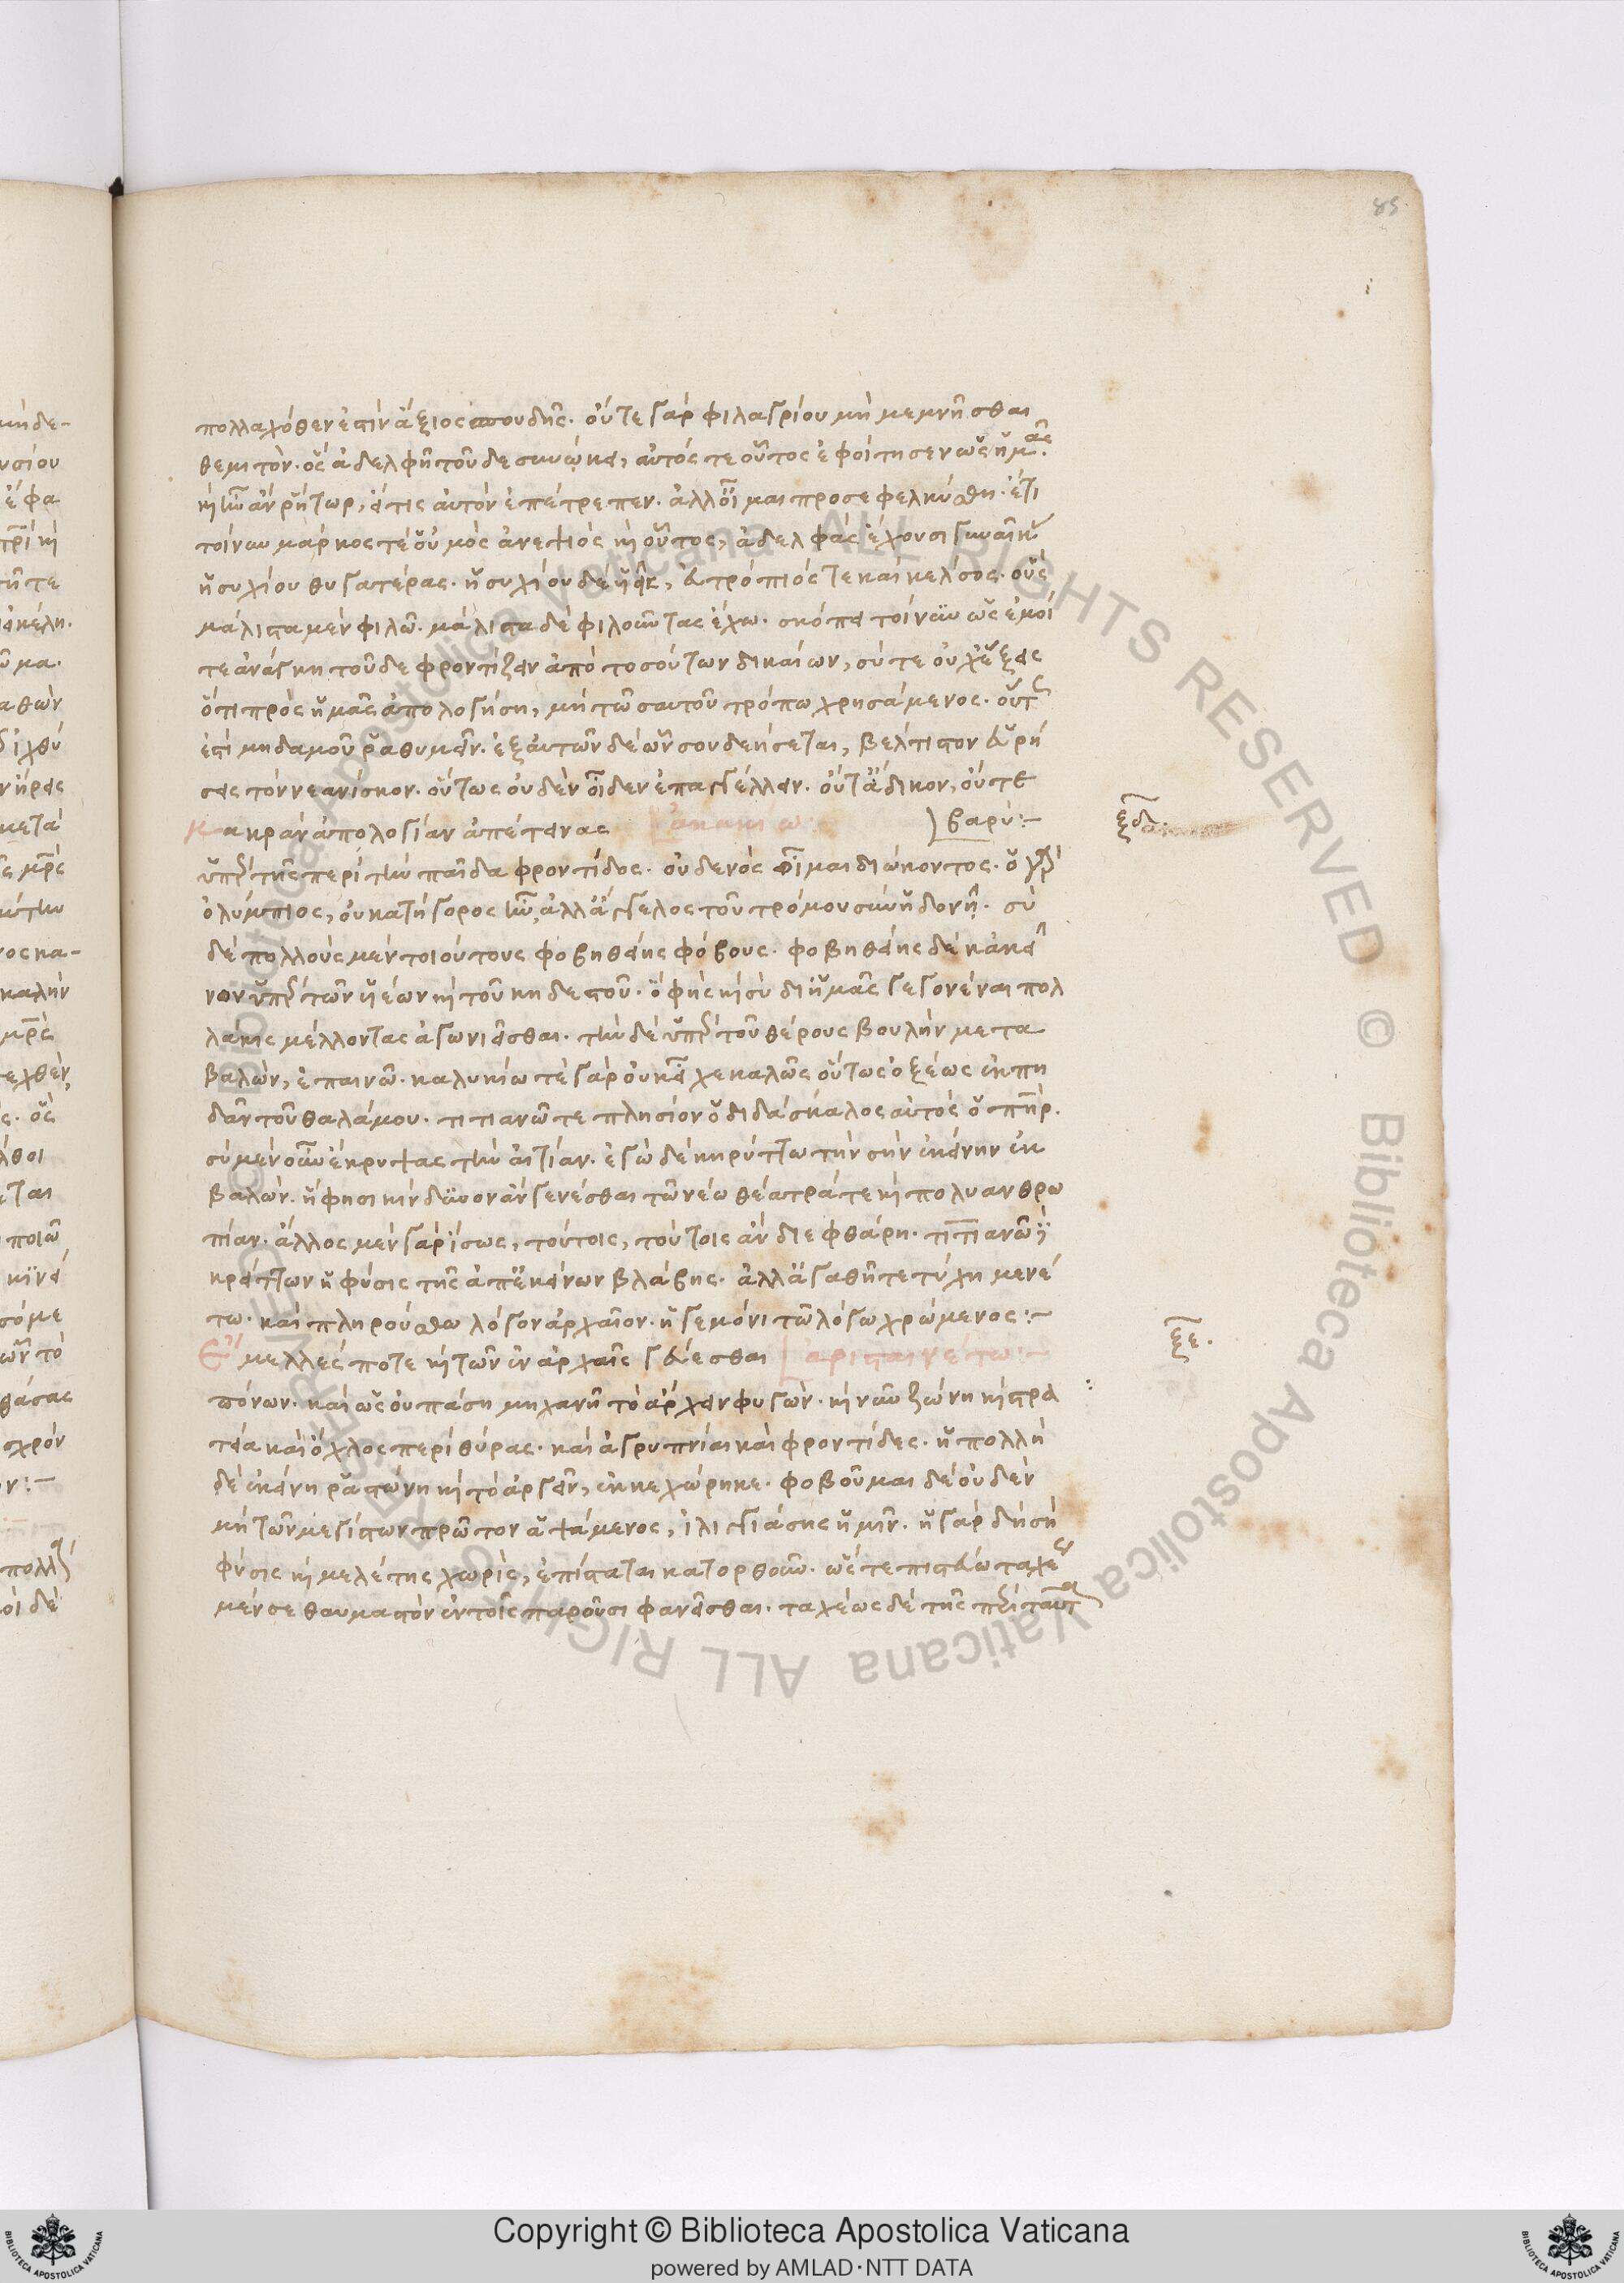 85
πολλαχόθεν ἐστὶν ἄξιος σπουδῆς. οὔτε γὰρ φιλαγρίου μὴ μεμνῆσθαι
θεμιτὸν. ὃς ἀδελφῆ τοῦδε συνώκει, αὐτός τε οὗτος ἐφοίτησεν ὡς ἡμᾶς.
κὶ ἦν ἂν ῥήτωρ, εἴ τις αὐτὸν ἐπέτρεπεν. ἀλλ' οἶμαι προσεφελκύσθη. ἔτι
τοίνυν μάρκος τέ ὁ ὐμὸς ἀνεψιὸς κὶ οὗτος, ἀδελφὰς ἔχουσι γυναῖκας
ἡσυχίου θυγατέρας. ἡσυχίου δὲ ἦσαν, εὐτρόπιός τε καὶ κέλσος. οὓς
μάλιστα μὲν φιλῶ. μάλιστα δὲ φιλοῦντας ἔχω. σκόπει τοίνυν ὡς ἐμοί
τε ἀνάγκη τοῦδε φροντίζειν ἀπὸ τοσούτων δικαίων, σύ τε οὐχ ἕξεις
ὅτι πρὸς ἡμᾶς ἀπολογήση, μὴ τῶ σαυτοῦ τρόπω χρησάμενος. οὗτος δέ
ἐστι μηδαμοῦ ῥαθυμεῖν. ἐξ αὐτῶν δὲ ὧν σου δεήσεται, βέλτιστον εὑρή
σεις τὸν νεανίσκον. οὕτως οὐδὲν οἶδεν ἐπαγγέλλειν. οὔτ' ἄδικον, οὔτε
μακρὰν ἀπολογίαν ἀπέτεινας ἀκακίω: βαρύ:-
ξδ.
ὑπὲρ τῆς περὶ τὴν παῖδα φροντίδος. οὐδενὸς οἶμαι διώκοντος. ὁ γὰρ
ὀλύμπιος, οὐ κατήγορος ἦν, ἀλλ' ἄγγελος τοῦ τρόμου σὺν ἡδονῆ. σὺ
δὲ πολλοὺς μὲν τοιούτους φοβηθείης φόβους. φοβηθείης δὲ κἀκεῖ
νον ὑπὲρ τῶν υἱέων κὶ τοῦ κηδεστοῦ. ὃ φὴς κὶ σὺ δι' ἡμᾶς γεγονέναι πολ
λάκις μέλλοντας ἀγωνιεῖσθαι. τὴν δὲ ὑπὲρ τοῦ θέρους βουλὴν μετα
βαλὼν, ἐπαινῶ. καλυκίω τε γὰρ οὐκ εἶχε καλῶς οὕτως ὀξέως ἐκπη
δᾶν τοῦ θαλάμου. τιτιανῶ τε πλησίον ὁ διδάσκαλος αὐτὸς ὁ πατήρ.
σὺ μὲν οὖν ἔκρυψας τὴν αἰτίαν. ἐγὼ δὲ κηρύττω τὴν σὴν ἐκείνην ἐκ
βαλών. ἣ φησι κινδύνον ἂν γενέσθαι τῶ νέω θέατρά τε κὶ πολυανθρω
πίαν. ἄλλος μὲν γὰρ ἴσως, τούτοις, τούτοις ἂν διεφθάρη. τιτιανῶ δὲ
κρείττων ἡ φύσις τῆς ἀπ' ἐκείνων βλάβης. ἀλλ' ἀγαθῆ τε τύχη μενέ
τω. καὶ πληρούσθω λόγον ἀρχαῖον. ἡγεμόνι τῶ λόγω χρώμενος:-
ξε.
Ἔμελλές ποτε κὶ τῶν ἐν ἀρχαῖς γεύεσθαι ἀρισταινέτω:-
πόνων. καὶ ὡς οὐ πάση μηχανῆ τὸ ἄρχειν φυγών. κὶ νῦν ζώνη κὶ στρα
τεία καὶ ὄχλος περὶ θύρας. καὶ ἀγρυπνίαι καὶ φροντίδες. ἡ πολλὴ
δὲ ἐκείνη ῥαστώνη κὶ τὸ ἀργεῖν, ἐκκεχώρηκε. φοβοῦμαι δὲ οὐδὲν
μὴ τῶν μεγίστων πρῶτον ἁψάμενος, ἰλιγγιάσης ἡμῖν. ἡ γὰρ δὴ σὴ
φύσις κὶ μελέτης χωρὶς, ἐπίσταται κατορθοῦν. ὥστε πιστεύω ταχέως
μὲν σε θαυμαστὸν ἐν τοῖς παροῦσι φανεῖσθαι. ταχέως δὲ τῆς περὶ ταῦτα
Copyright © Biblioteca Apostolica Vaticana
powered by AMLAD·NTT DATA